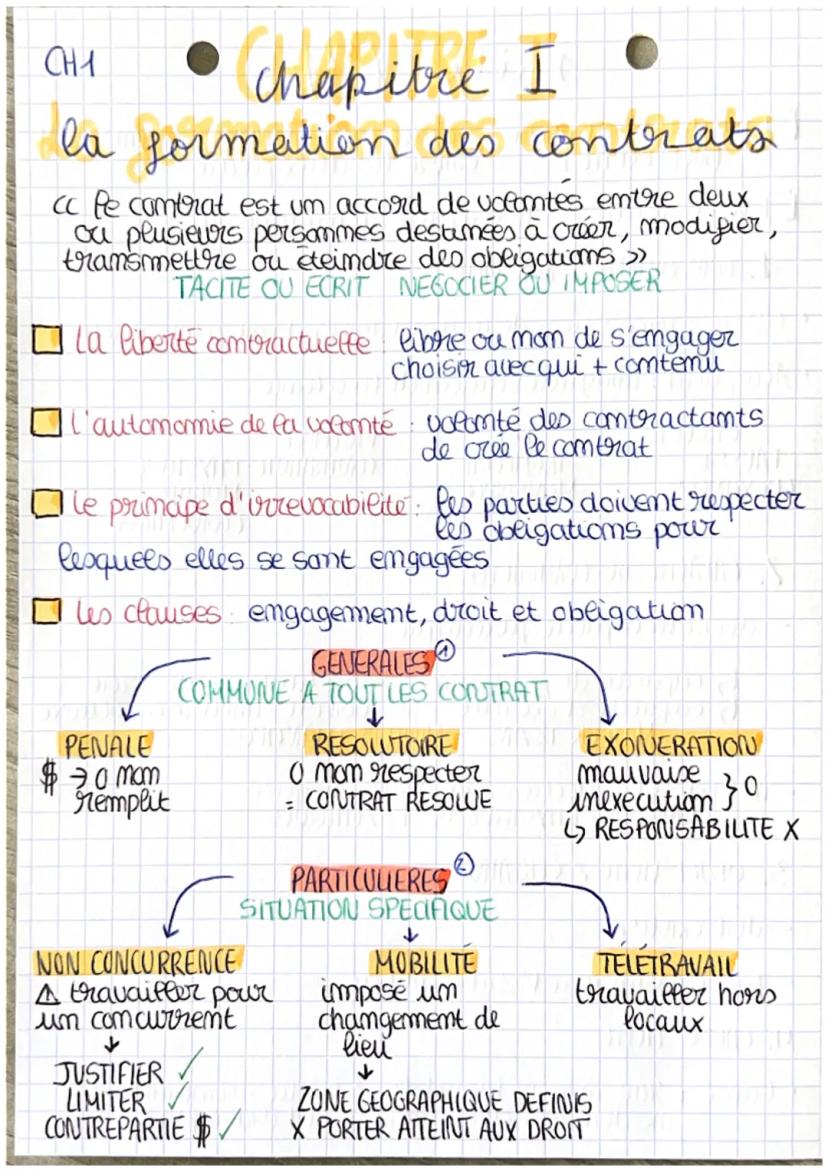 CH1
CHAPITRE I
chapitre I
la formation des contrats
<< le contrat est un accord de volontés entre deux
ou plusieurs personnes destinées à créer, modifier,
transmettre ou éteindre des obligations >>
TACITE OU ECRIT NEGOCIER OU IMPOSER
La liberté contractuelle : libre ou non de s'engager
choisir avec qui + contenu
l'autonomie de la volonté : volonté des contractants
de crée le contrat
le principe d'irrevocabilité : les parties doivent respecter
les obligations pour
lesquels elles se sont engagées
les clauses : engagement, droit et obligation
GENERALES 1
COMMUNE A TOUT LES CONTRAT
PENALE
$ → O non
remplit
RESOLUTOIRE
O non respecter
= CONTRAT RESOLUE
EXONERATION
mauvaise
inexecution } O
↳ RESPONSABILITE X
PARTICULIERES 2
SITUATION SPECIFIQUE
NON CONCURRENCE
⚠ travailler pour
un concurrent
↓
JUSTIFIER ✓
LIMITER ✓
CONTREPARTIE $ ✓
MOBILITÉ
imposé un
changement de
lieu
↓
ZONE GEOGRAPHIQUE DEFINIS
X PORTER ATTEINT AUX DROIT
TÉLÉTRAVAIL
travailler hors
locaux